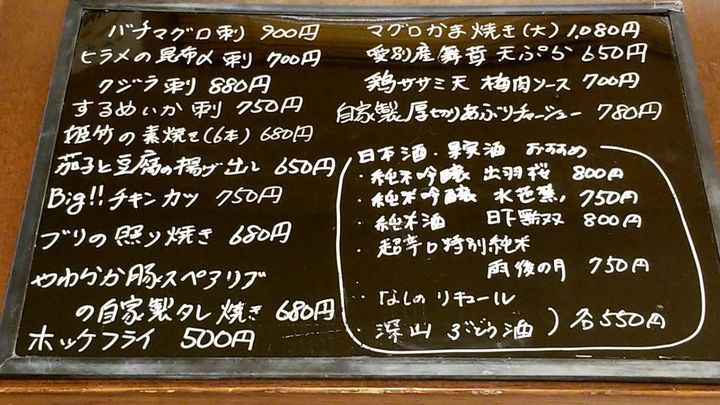 バチマグロ刺 900円
ヒラメの昆布〆刺 700円
クジラ刺 880円
するめいか刺 750円
姫竹の素焼き(6本) 680円
茄子と豆腐の揚げ出し 650円
Big!!チキンカツ 750円
ブリの照り焼き 680円
やわらか豚スペアリブ
の自家製タレ焼き 680円
ホッケフライ 500円
マグロかま焼き(大) 1,080円
愛別産舞茸天ぷら 650円
鶏ササミ天 梅肉ソース 700円
自家製厚切りあぶりチャーシュー 780円
日本酒・果実酒 おすすめ
・純米吟醸 出羽桜 800円
・純米吟醸 水芭蕉 750円
・純米酒 日下無双 800円
・超辛口特別純米
雨後の月 750円
・なしのリキュール
・深山ぶどう酒 ) 各550円